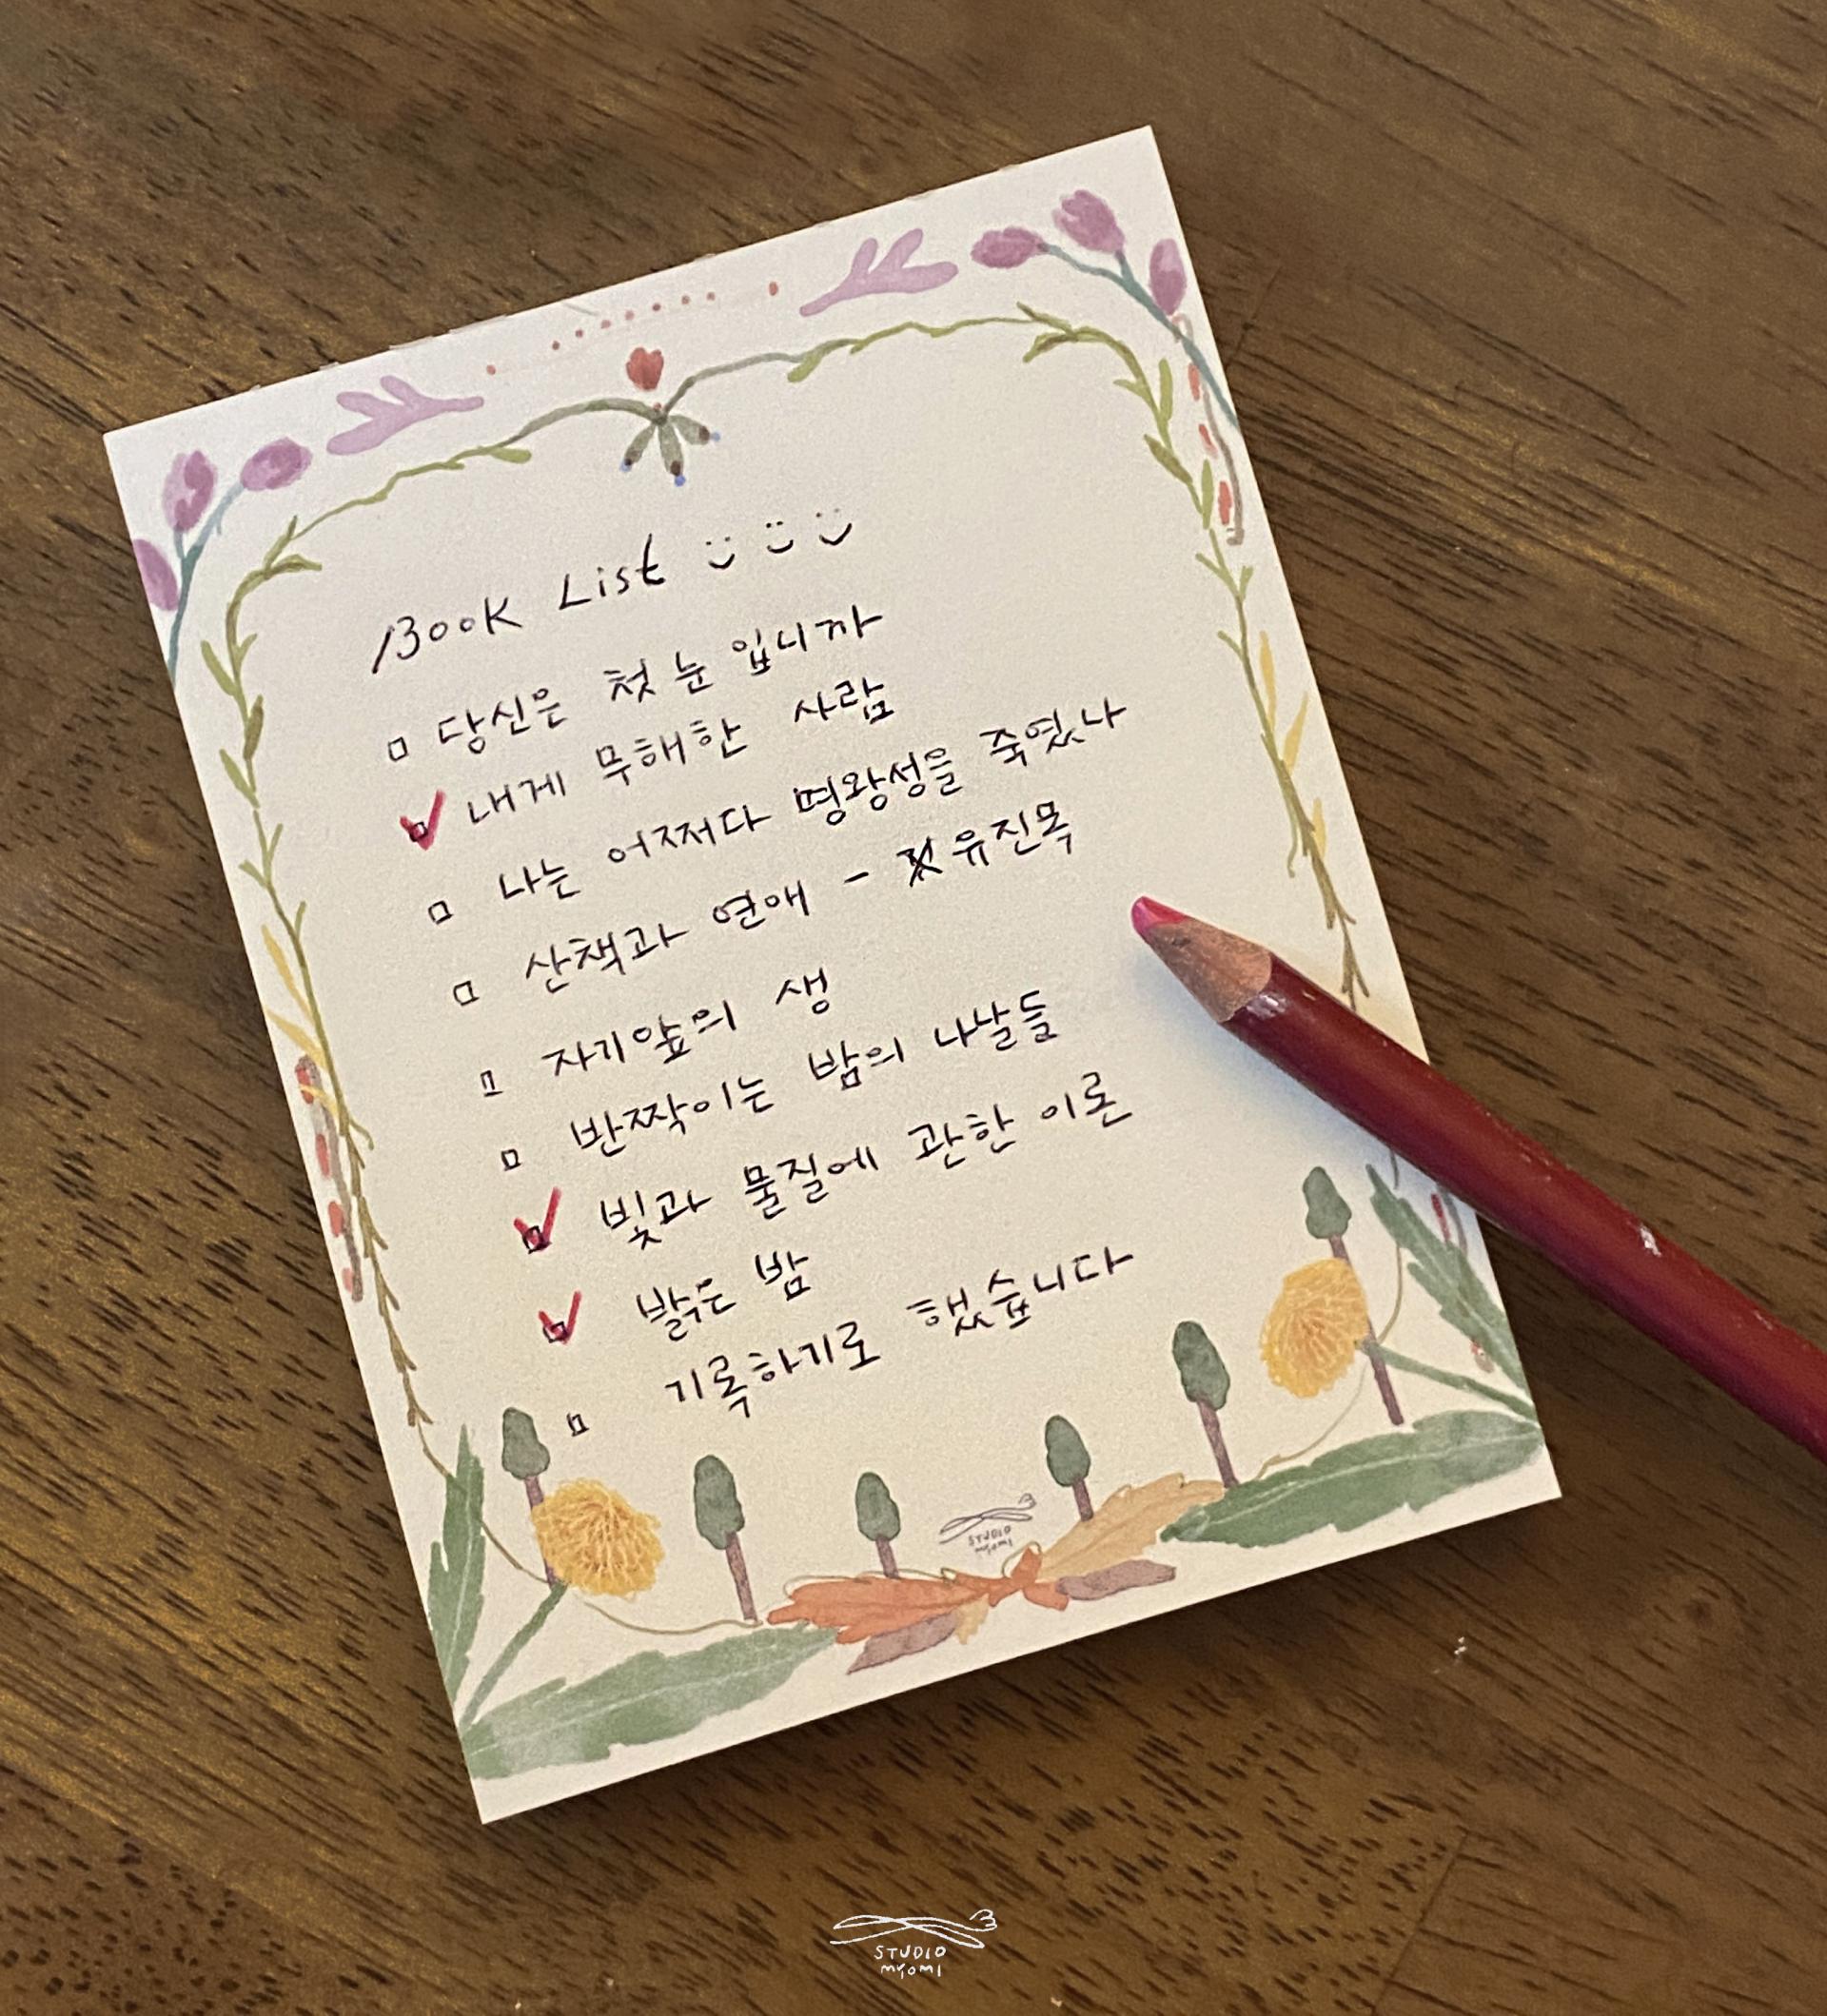 Book List
□ 당신은 첫 눈 입니까
☑ 내게 무해한 사람
□ 나는 어쩌다 명왕성을 죽였나
□ 산책과 연애 - 유진목
□ 자기앞의 생
□ 반짝이는 밤의 나날들
☑ 빛과 물질에 관한 이론
☑ 밝은 밤
□ 기록하기로 했습니다
STUDIO
myomi
STUDIO
myomi